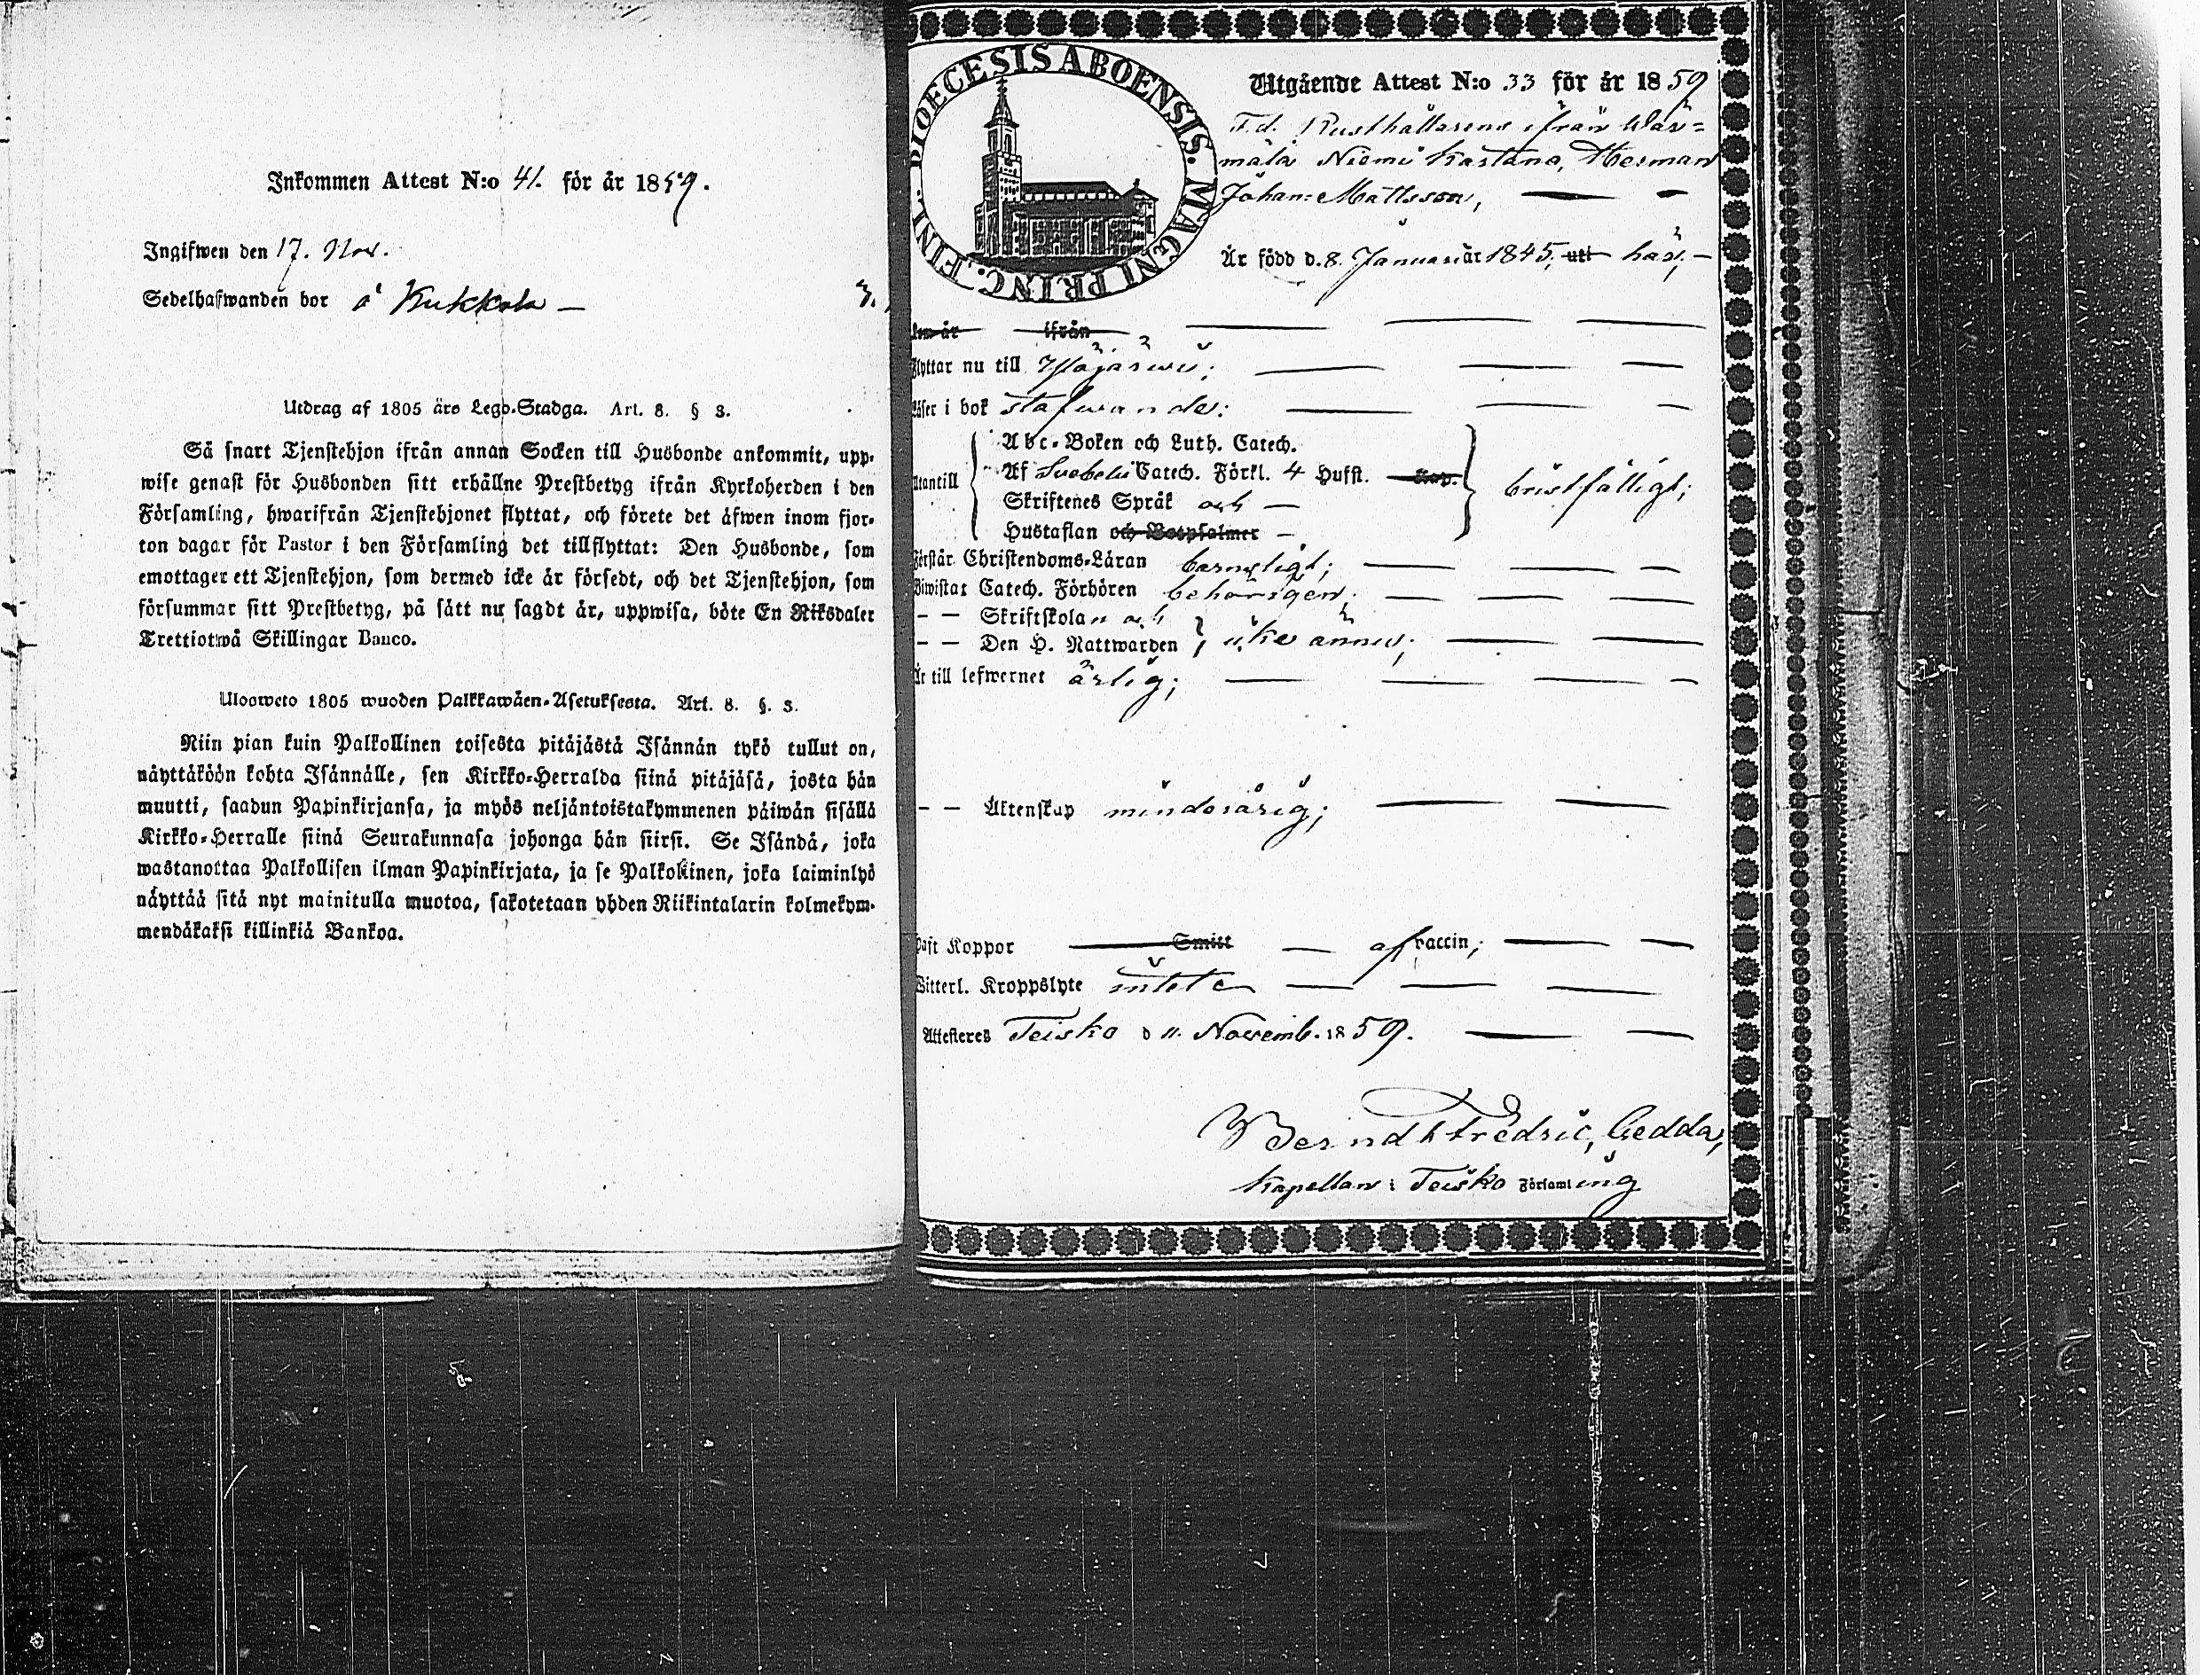 Inkommen Attest N:o 41. för år 1859.
Ingifwen den 17. Nov.
Sedelhafwanden bor å Kukkola —
Utdrag af 1805 års Lego-Stadga. Art. 8. § 3.
Så snart Tjenstehjon ifrån annan Socken till Husbonde ankommit, upp-
wise genast för Husbonden sitt erhållne Prestbetyg ifrån Kyrkoherden i den
Församling, hwarifrån Tjenstehjonet flyttat, och förete det äfwen inom fjor-
ton dagar för Pastor i den Församling det tillflyttat: Den Husbonde, som
emottager ett Tjenstehjon, som dermed icke är försedt, och det Tjenstehjon, som
försummar sitt Prestbetyg, på sätt nu sagdt är, uppwisa, böte En Riksdaler
Trettiotwå Skillingar Banco.
Ulosweto 1805 wuoden Palkkawäen-Asetuksesta. Art. 8. §. 3.
Niin pian kuin Palkollinen toisesta pitäjästä Isännän tykö tullut on,
näyttäköön kohta Isännälle, sen Kirkko-Herralda siinä pitäjäsä, josta hän
muutti, saadun Papinkirjansa, ja myös neljäntoistakymmenen päiwän sisällä
Kirkko-Herralle siinä Seurakunnasa johonga hän siirsi. Se Isändä, joka
wastanottaa Palkollisen ilman Papinkirjata, ja se Palkollinen, joka laiminlyö
näyttää sitä nyt mainitulla muotoa, sakotetaan yhden Riikintalarin kolmekym-
mendäkaksi killinkiä Bankoa.
DIOECESIS ABOENSIS. MAGNI PRINC. FINL.
Utgående Attest N:o 33 för år 1859
F.d. Rusthållarens ifrån Wär-
mälä Niemi Herman
Johan Mattsson,
Är född d. 8. Januari år 1845, utt här,
kom år ifrån
flyttar nu till Ylöjärwi;
Läser i bok stafwande:
Abc-Boken och Luth. Catech.
Utantill Af Svebelii Catech. Förkl. 4 Hufst. Kap. bristfälligt;
Skriftenes Språk och —
Hustaflan och Botpsalmer —
Förstår Christendoms-Läran barnsligt;
Biwistat Catech. Förhören behörigen;
— — Skriftskolan och
— — Den H. Nattwarden icke ännu;
Är till lefwernet ärlig;
— — Äktenskap minderårig;
Haft Koppor Smitt — af vaccin;
Witterl. Kroppslyte intet
Attesteres Teisko d 11. Novemb. 1859.
Berndt Fredric Gedda,
Kapellan i Teisko Församling